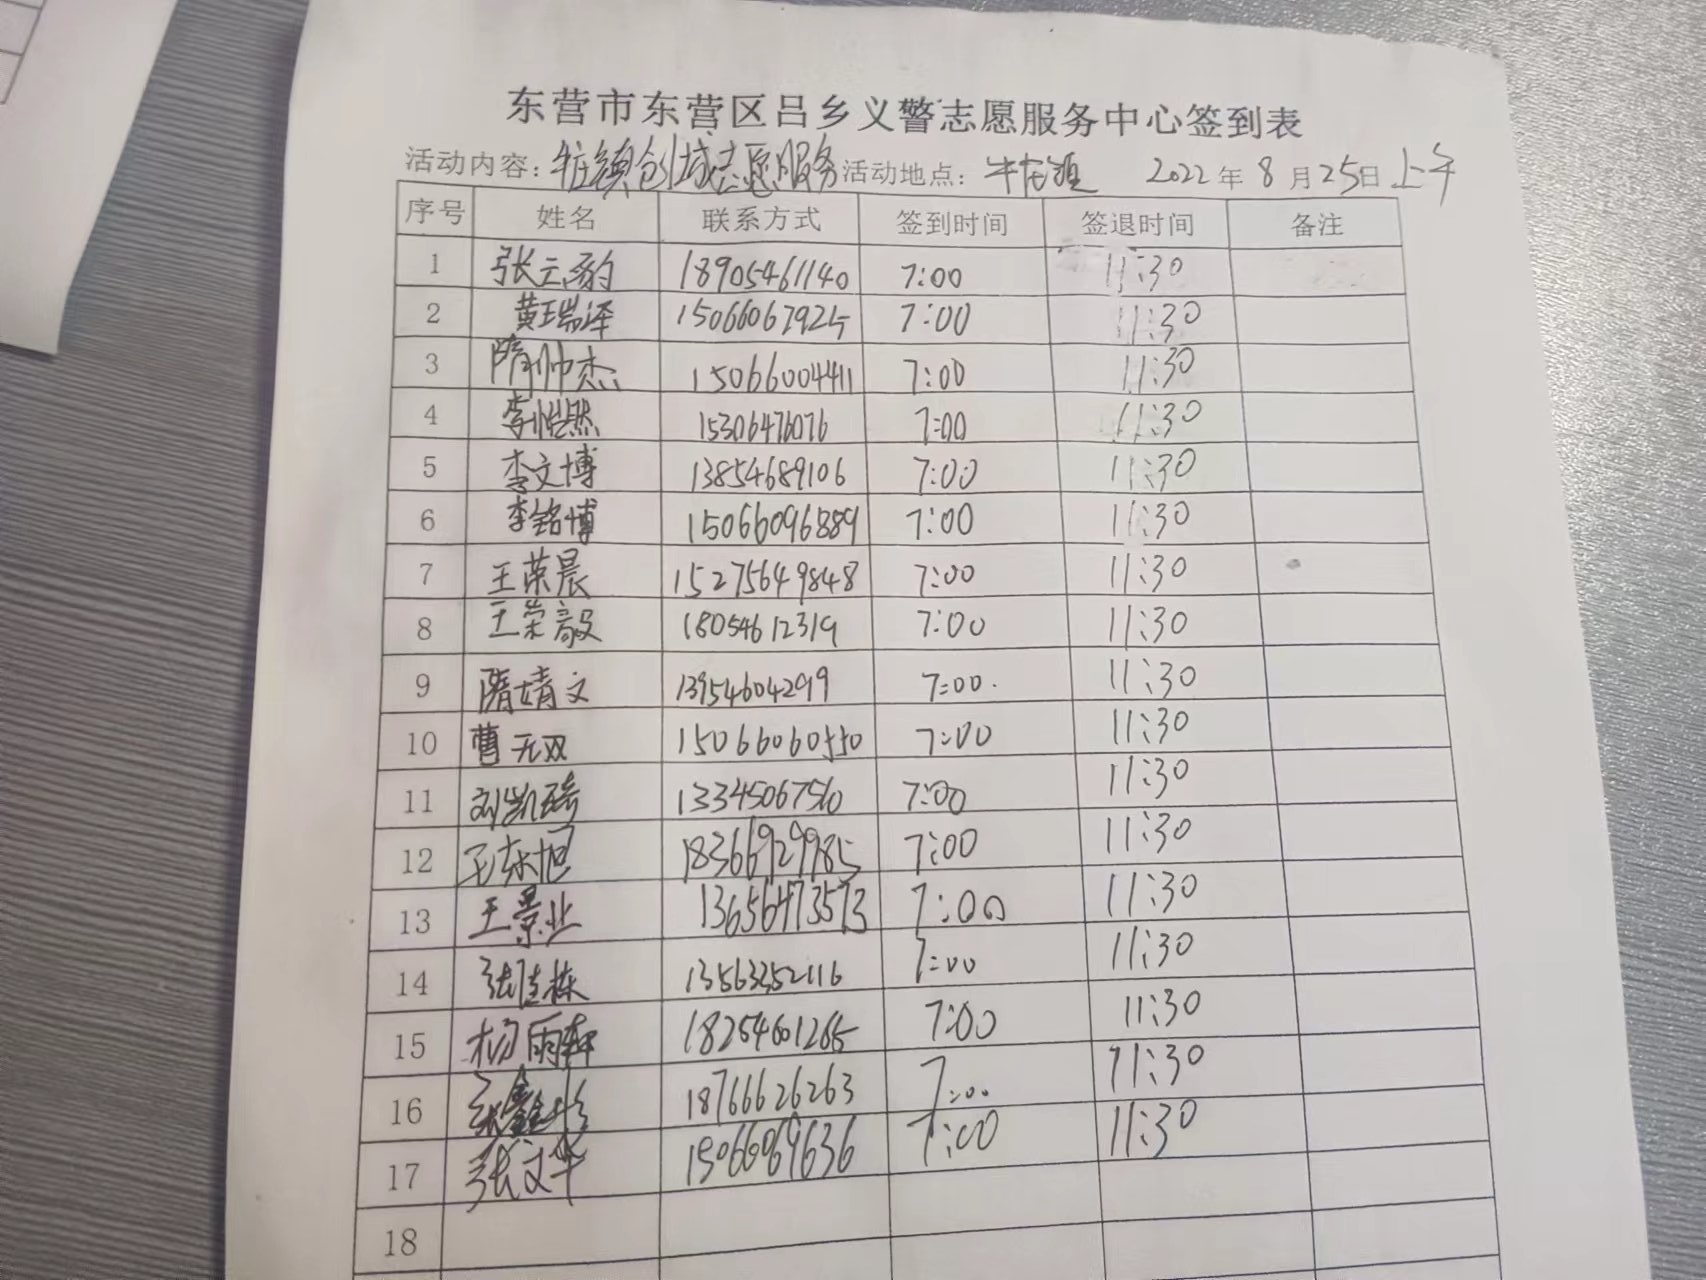 东营市东营区吕乡义警志愿服务中心签到表
活动内容：牛庄镇创城志愿服务 活动地点：牛庄镇 2022年8月25日上午
序号 姓名 联系方式 签到时间 签退时间 备注
1 张立豹 18905461140 7:00 11:30
2 黄瑞泽 15066067925 7:00 11:30
3 隋帅杰 15066004411 7:00 11:30
4 李恺然 15306476076 7:00 11:30
5 李文博 13854689106 7:00 11:30
6 李铭博 15066096889 7:00 11:30
7 王荣晨 15275649848 7:00 11:30
8 王荣毅 18054612319 7:00 11:30
9 隋婧文 13954604299 7:00 11:30
10 曹无双 15066060550 7:00 11:30
11 刘凯琦 13345067560 7:00 11:30
12 王东旭 18366929985 7:00 11:30
13 王景业 13656473573 7:00 11:30
14 张佳栋 13563352116 7:00 11:30
15 杨雨轩 18254601265 7:00 11:30
16 张鑫 18766626263 7:00 11:30
17 张文华 15066069636 7:00 11:30
18